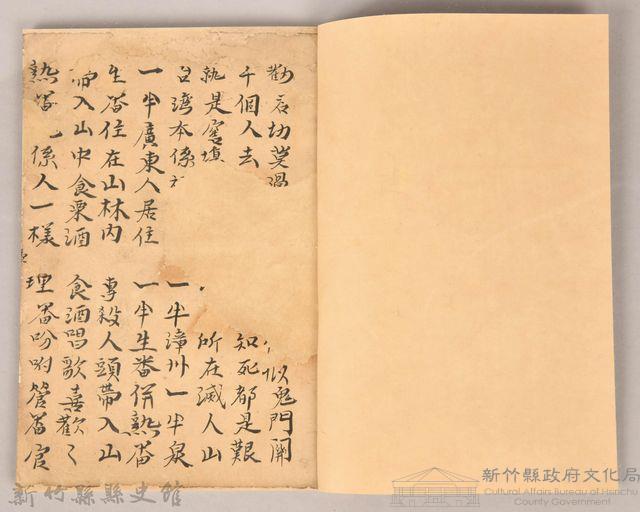 勸君切莫過 似鬼門關
千個人去 知死都是艱
孰是窖填 所在滅人山
台灣本係 一半漳州一半泉
一半廣東人居住 一半生番併熟番
生番住在山林內 專殺人頭帶入山
入山中食粟酒 食酒唱歌喜歡〻
熟番 係人一樣 理番吩咐管番官
新竹縣縣史館
新竹縣政府文化局
Cultural Affairs Bureau of Hsinchu
County Government